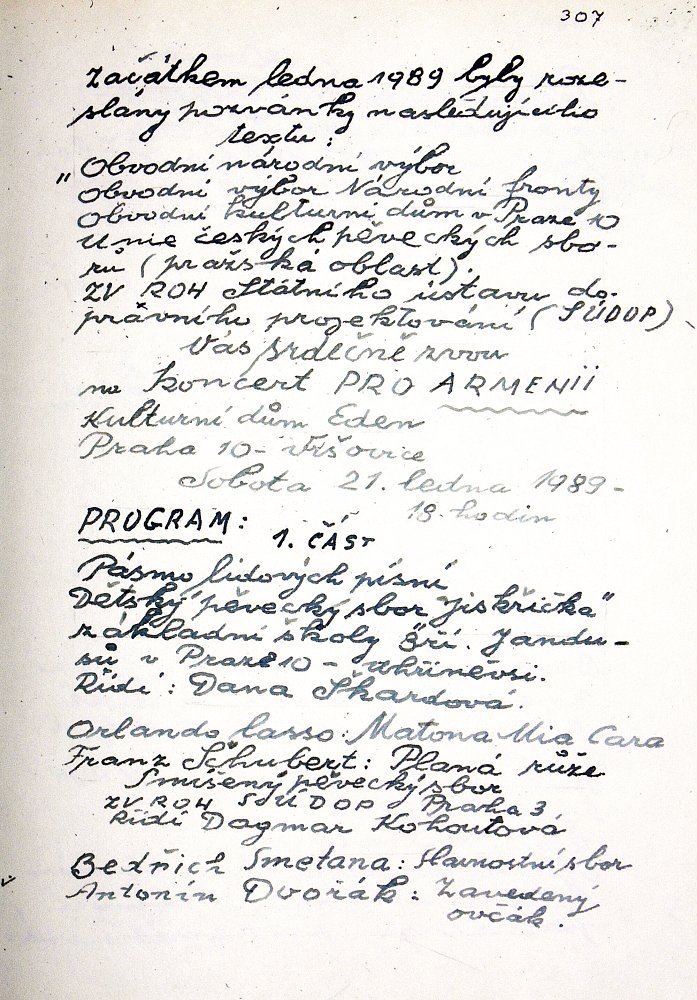 307
Začátkem ledna 1989 byly roze-
slány pozvánky následujícího
textu:
"Obvodní národní výbor
Obvodní výbor Národní fronty
Obvodní kulturní dům v Praze 10
Unie českých pěveckých sbo-
rů (pražská oblast).
ZV ROH Státního ústavu do-
právního projektování (SÚDOP)
Vás srdečně zvou
na koncert PRO ARMENII
Kulturní dům Eden
Praha 10 - Vršovice
Sobota 21. ledna 1989 -
18. hodin
PROGRAM:
1. ČÁST
Pásmo lidových písní
Dětský pěvecký sbor "Jiskřička"
základní školy Bří. Jandu-
sů v Praze 10 - Uhříněvsi.
Řídí: Dana Škardová.
Orlando lasso: Matona Mia Cara
Franz Schubert: Planá růže
Smíšený pěvecký sbor
ZV ROH SÚDOP Praha 3
Řídí Dagmar Kohoutová
Bedřich Smetana: Slavnostní sbor
Antonín Dvořák: Zavedený
ovčák.